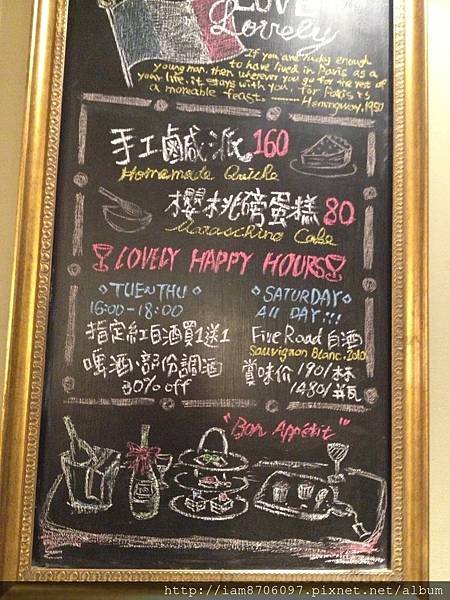 LOVE
Lovely
If you are lucky enough
to have lived in Paris as a
young man, then wherever you go for the rest of
your life, it stays with you, for Paris is
a moveable feast. Hemingway, 1950
手工鹹派 160
Homemade Quiche
櫻桃磅蛋糕 80
Maraschino Cake
LOVELY HAPPY HOURS
TUE~THU
16:00-18:00
指定紅白酒買1送1
啤酒、部份調酒
30% off
SATURDAY
All DAY!!!
Five Road 白酒
Sauvignon Blanc, 2010
賞味价 190/杯
1480/瓶
"Bon Appétit"
http://iam8706097.pixnet.net/album